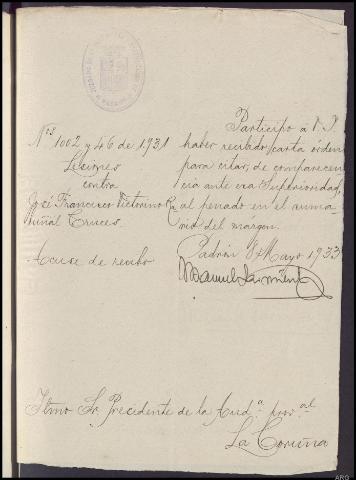 Nos 1002 y 46 de 1931
Lesiones
contra
José Francisco Victorino Ra
muñal Cruces
Acuse de recibo
Participo á V.I.
haber recibido carta orden
para citar, de comparecen
cia ante esa Superioridad,
al penado en el suma
rio del márgen.
Padrón 8 Mayo 1933
Manuel
Iltmo Sr Presidente de la Aud.a prov.al
La Coruña
ARG